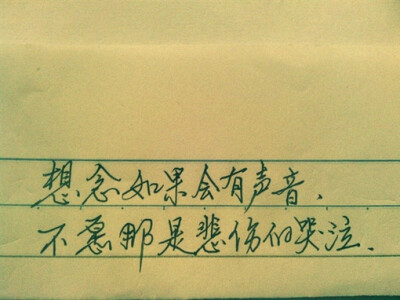 想念如果会有声音.
不愿那是悲伤的哭泣.